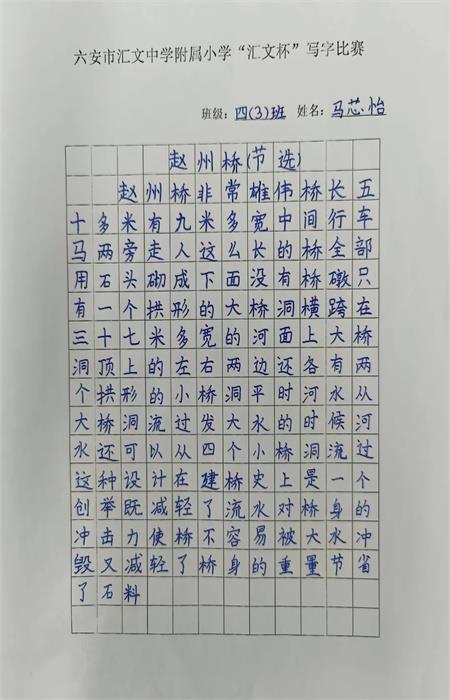 六安市汇文中学附属小学“汇文杯”写字比赛
班级：四(3)班 姓名：马芯怡
赵州桥(节选)
赵州桥非常雄伟桥长五
十多米有九米多宽中间行车
马两旁走人这么长的桥全部
用石头砌成下面没有桥礅只
有一个拱形的大桥洞横跨在
三十七米多宽的河面上大桥
洞顶上的左右两边还各有两
个拱形的小桥洞平时河水从
大桥洞流过发大水的时候河
水还可以从四个小桥洞流过
这种设计在建桥史上是一个
创举既减轻了流水对桥身的
冲击力使桥不容易被大水冲
毁又减轻了桥身的重量节省
了石料